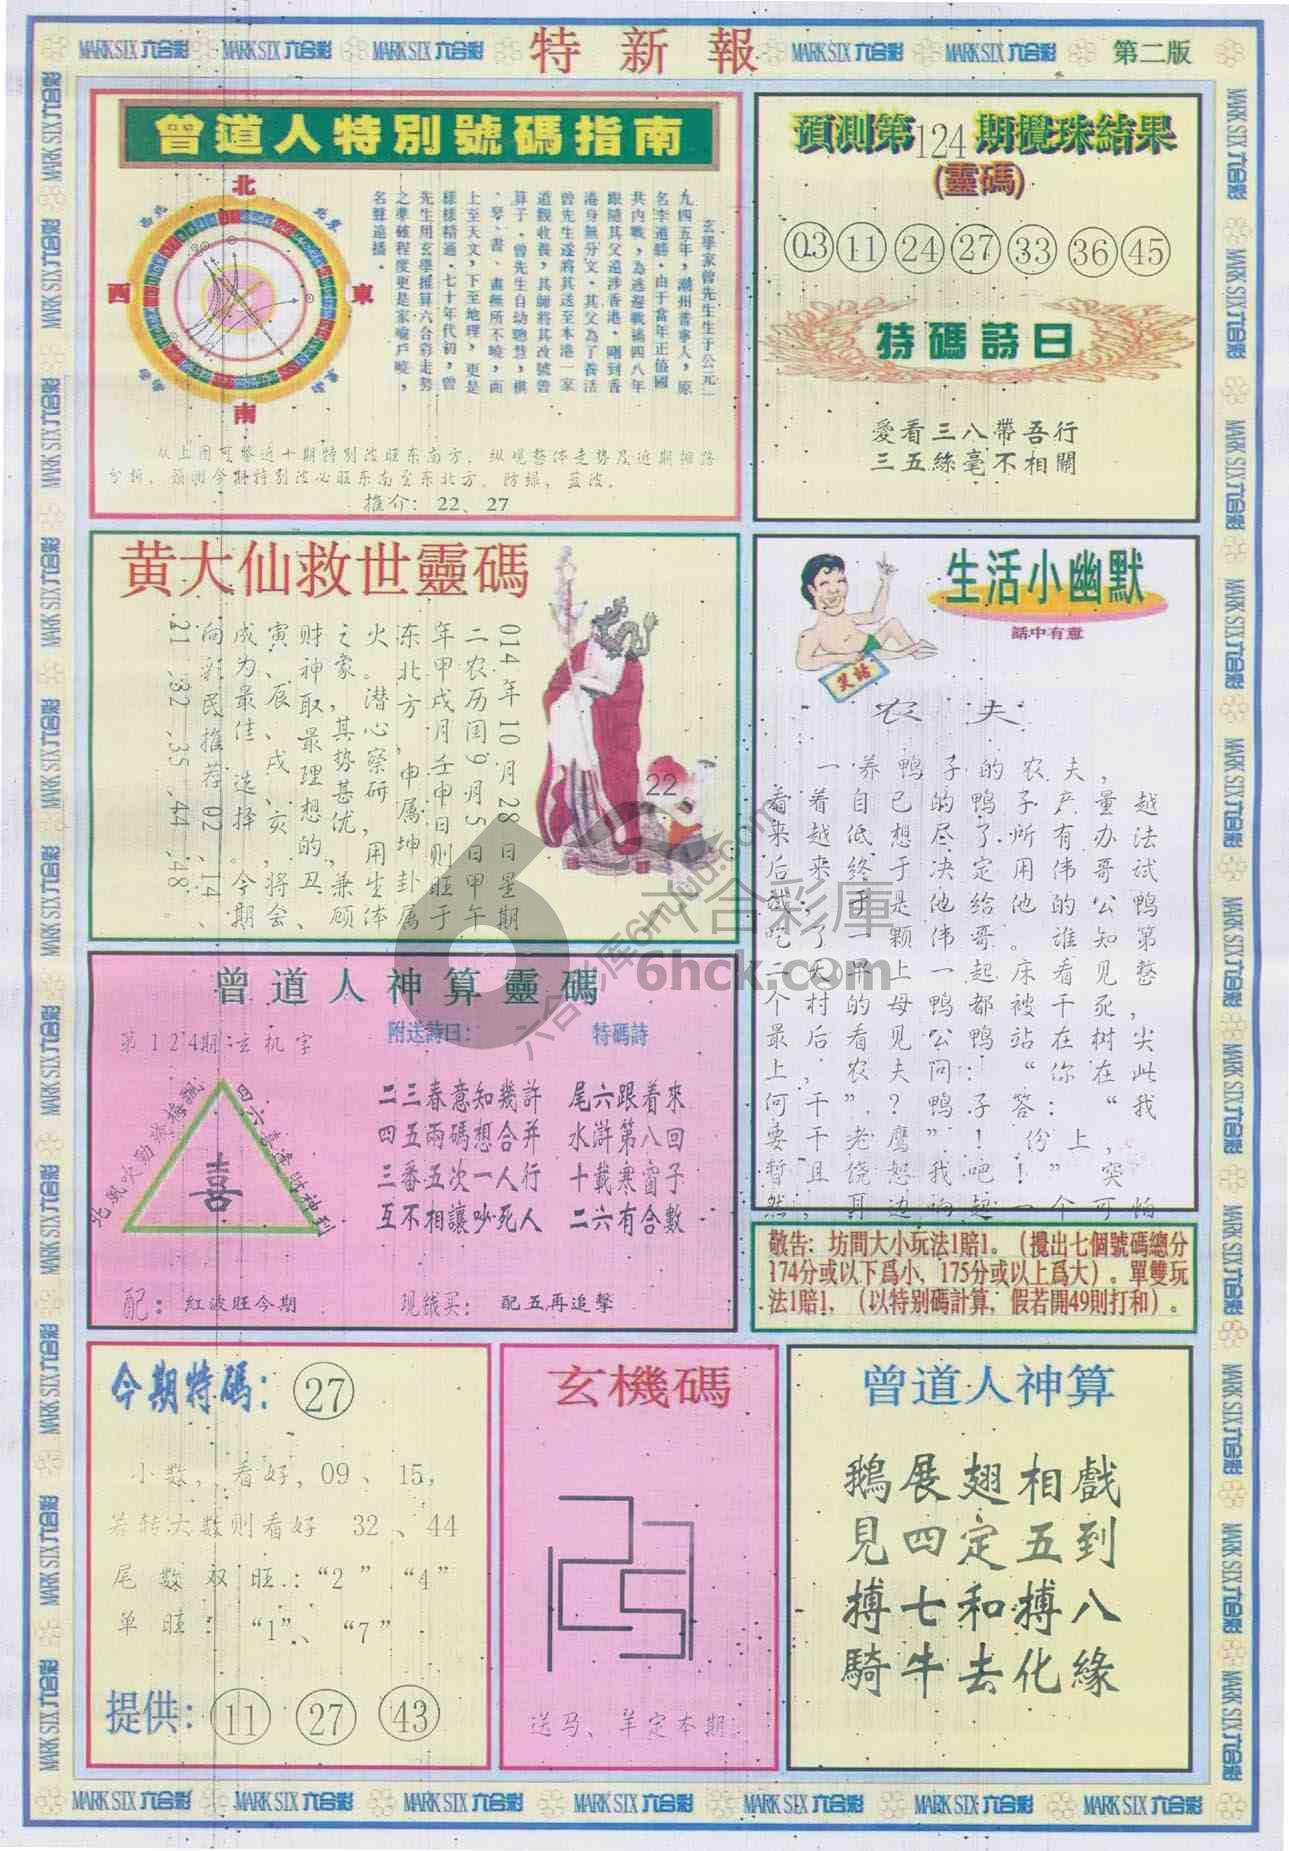 MARK SIX 六合彩 MARK SIX 六合彩 MARK SIX 六合彩 特新報 MARK SIX 六合彩 MARK SIX 六合彩 第二版
曾道人特別號碼指南
北
東
西
南
玄學家曾先生生于公元一
九四五年，潮州普寧人，原
名李道勝。由于當年正值國
共内戰，為逃避戰禍四八年
跟隨其父遠涉香港。剛到香
港身無分文，其父為了養活
曾先生遂將其送至本港一家
道觀收養，其師將其改號曾
算子。曾先生自幼聰慧，棋
、琴、書、畫無所不曉，而
上至天文，下至地理，更是
樣樣精通。七十年代初，曾
先生用玄學推算六合彩走勢
之準確程度更是家喻戶曉，
名聲遠播。
从上图可察近十期特别波旺东南方，纵观整体走势及近期摇路
分析，预测今期特别波必旺东南至东北方。防绿，蓝波。
推介：22、27
預測第124期攪珠結果
(靈碼)
03 11 24 27 33 36 45
特碼詩曰
愛看三八帶吾行
三五絲毫不相關
黄大仙救世靈碼
014年10月28日星期
二农历闰9月5日甲午
年甲戌月壬申日则旺于
东北方，申属坤卦属
火。潜心察研，用生体
之象，其势甚优，兼顾
财神取最理想的丑、
寅、辰、戌、亥，将会
成为最佳选择。今期
向彩民推荐02.14、
21.32.35.44.48。
22
生活小幽默
話中有意
笑話
农 夫
一养鸭子的农夫，
看着自己的鸭子产量越
来越低想尽了所有办法
后来终于决定用伟哥试
试，于是他给他的公鸭
吃了一颗伟哥。谁知第
二天早上一起床看见整
个村的母鸭都被干死，
最后，看见公鸭站在树尖
上，农夫问：“你在此
何干”？鸭子答：“我
要干老鹰”！份上，
暂且绕恕我吧！”突
然，耳边响起一个可怕
曾道人神算靈碼
第124期:玄机字
附送詩曰：
特碼詩
北风吹动
四六喜逢财神到
喜
二三春意知幾許
四五兩碼想合并
三番五次一人行
互不相讓吵死人
尾六跟着來
水滸第八回
十載寒窗子
二六有合數
配：紅波旺今期
现钱买：配五再追擊
敬告：坊間大小玩法1賠1。（攪出七個號碼總分
174分或以下爲小，175分或以上爲大）。單雙玩
法1賠1，（以特别碼計算，假若開49則打和）。
今期特碼：27
小数，看好，09、15，
若转大数则看好 32、44
尾数双旺：“2”“4”
单旺：“1”、“7”
提供：11 27 43
玄機碼
送马、羊定本期：
曾道人神算
鵝展翅相戲
見四定五到
搏七和搏八
騎牛去化緣
六合彩庫
6hck.com
MARK SIX 六合彩 MARK SIX 六合彩 MARK SIX 六合彩 MARK SIX 六合彩 MARK SIX 六合彩 MARK SIX 六合彩 MARK SIX 六合彩